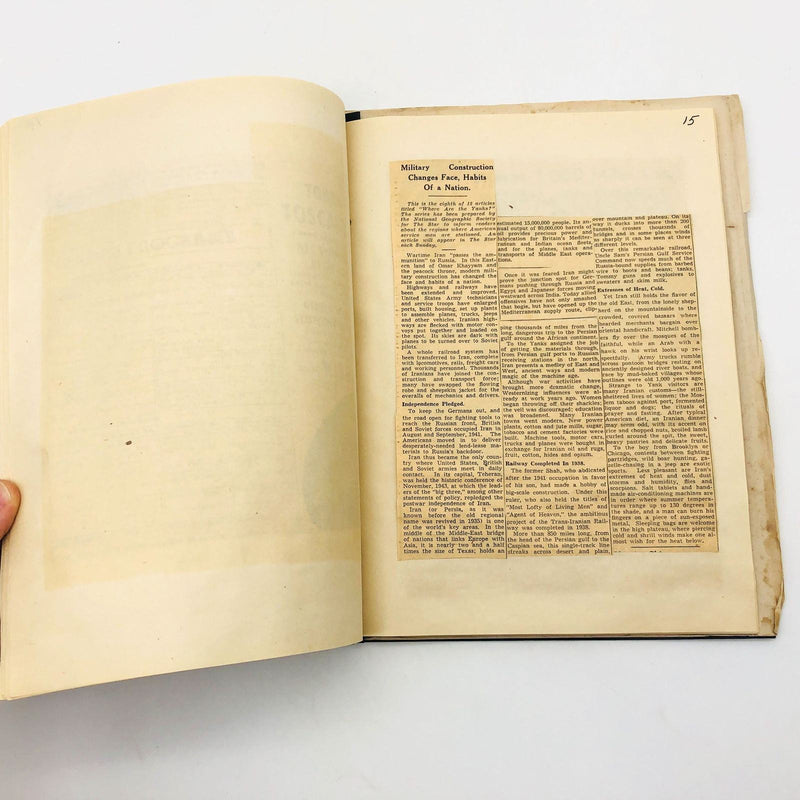 15
Military Construction
Changes Face, Habits
Of a Nation.
This is the eighth of 18 articles
titled "Where Are the Yanks?"
The series has been prepared by
the National Geographic Society
for The Star to inform readers
about the regions where American
service men are stationed. An
article will appear in The Star
each Sunday.
Wartime Iran "passes the am-
munition" to Russia. In this East-
ern land of Omar Khayyam and
the peacock throne, modern mili-
tary construction has changed the
face and habits of a nation.
Highways and railways have
been extended and improved.
United States Army technicians
and service troops have enlarged
ports, built housing, set up plants
to assemble planes, trucks, jeeps
and other vehicles. Iranian high-
ways are flecked with motor con-
voys put together and loaded on
the spot. Its skies are dark with
planes to be turned over to Soviet
pilots.
A whole railroad system has
been transferred to Iran, complete
with locomotives, rails, freight cars
and working personnel. Thousands
of Iranians have joined the con-
struction and transport force;
many have swapped the flowing
robe and sheepskin jacket for the
overalls of mechanics and drivers.
Independence Pledged.
To keep the Germans out, and
the road open for fighting tools to
reach the Russian front, British
and Soviet forces occupied Iran in
August and September, 1941. The
Americans moved in to deliver
desperately-needed lend-lease ma-
terials to Russia's backdoor.
Iran thus became the only coun-
try where United States, British
and Soviet armies meet in daily
contact. In its capital, Teheran,
was held the historic conference of
November, 1943, at which the lead-
ers of the "big three," among other
statements of policy, repledged the
postwar independence of Iran.
Iran (or Persia, as it was
known before the old regional
name was revived in 1935) is one
of the world's key areas. In the
middle of the Middle-East bridge
of nations that links Europe with
Asia, it is nearly two and a half
times the size of Texas; holds an
estimated 15,000,000 people. Its an-
nual output of 80,000,000 barrels of
oil provides precious power and
lubrication for Britain's Mediter-
ranean and Indian ocean fleets,
and for the planes, tanks and
transports of Middle East opera-
tions.
Once it was feared Iran might
prove the junction spot for Ger-
mans pushing through Russia and
Egypt and Japanese forces moving
westward across India. Today allied
offensives have not only smashed
that bogie, but have opened up the
Mediterranean supply route, clip-
ping thousands of miles from the
long, dangerous trip to the Persian
gulf around the African continent.
To the Yanks assigned the job
of getting the materials through,
from Persian gulf ports to Russian
receiving stations in the north,
Iran presents a medley of East and
West, ancient ways and modern
magic of the machine age.
Although war activities have
brought more dramatic change,
Westernizing influences were al-
ready at work years ago. Women
began throwing off their shackles;
the veil was discouraged; education
was broadened. Many Iranian
towns went modern. New power
plants, cotton and jute mills, sugar,
tobacco and cement factories were
built. Machine tools, motor cars,
trucks and planes were bought in
exchange for Iranian oil and rugs,
fruit, cotton, hides and opium.
Railway Completed In 1938.
The former Shah, who abdicated
after the 1941 occupation in favor
of his son, had made a hobby of
big-scale construction. Under this
ruler, who also held the titles of
"Most Lofty of Living Men" and
"Agent of Heaven," the ambitious
project of the Trans-Iranian Rail-
way was completed in 1938.
More than 850 miles long, from
the head of the Persian gulf to the
Caspian sea, this single-track line
streaks across desert and plain,
over mountain and plateau. On its
way it ducks into more than 200
tunnels, crosses thousands of
bridges and in some places winds
so sharply it can be seen at three
different levels.
Over this remarkable railroad,
Uncle Sam's Persian Gulf Service
Command now speeds much of the
Russia-bound supplies from barbed
wire to boots and beans; tanks,
Tommy guns and explosives to
sweaters and skim milk.
Extremes of Heat, Cold.
Yet Iran still holds the flavor of
the old East, from the lonely shep-
herd on the mountainside to the
crowded, covered bazaars where
bearded merchants bargain over
oriental handicraft. Mitchell bomb-
ers fly over the mosques of the
faithful, while an Arab with a
hawk on his wrist looks up re-
spectfully. Army trucks rumble
across pontoon bridges resting on
anciently designed river boats, and
race by mud-baked villages whose
outlines were old 1,000 years ago.
Strange to Yank visitors are
many Iranian customs—the still-
sheltered lives of women; the Mos-
lem taboos against pork, fermented
liquor and dogs; the rituals of
prayer and fasting. After typical
American diet, an Iranian dinner
may seem odd, with its accent on
rice and chopped nuts, broiled lamb
curled around the spit, the sweet,
heavy pastries and delicate fruits.
To the boy from Brooklyn or
Chicago, contests between fighting
partridges, wild bear hunting, ga-
zelle-chasing in a jeep are exotic
sports. Less pleasant are Iran's
extremes of heat and cold, dust
storms and humidity, flies and
scorpions. Salt tablets and hand-
made air-conditioning machines are
in order where summer tempera-
tures range up to 130 degrees in
the shade, and a man can burn his
fingers on a piece of sun-exposed
metal. Sleeping bags are welcome
in the high plateau, where piercing
cold and shrill winds make one al-
most wish for the heat below.